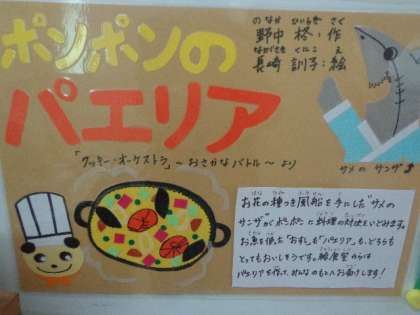 ポンポンの
パエリア
のなか ひいらぎ さく
野中 柊・作
ながさき くにこ え
長崎 訓子・絵
「クッキー・オーケストラ」～おさかなバトル～より
サメの サンザ
お花の種つき風船を手にしたサメの
サンザがポンポンに料理の対決をいどみます。
お魚を使った"おすし"も"パエリア"も、どちらも
とってもおいしそうです。給食室からは
パエリアを作って、みんなのもとへお届けします！